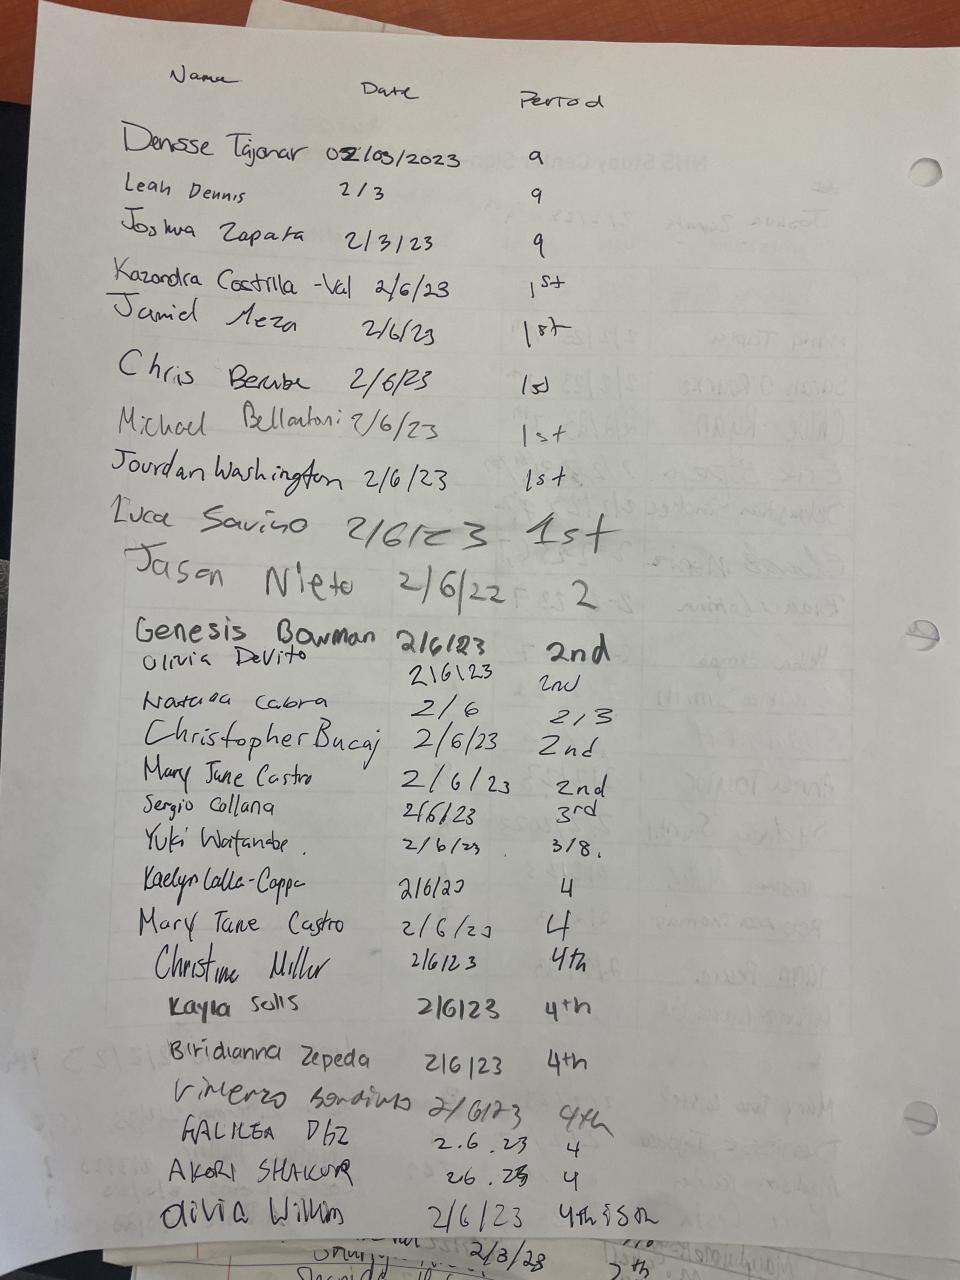 Name Date Period
Denisse Tajonar 02/03/2023 9
Leah Dennis 2/3 9
Joshua Zapata 2/3/23 9
Kazandra Costilla-Val 2/6/23 1st
Jamiel Meza 2/6/23 1st
Chris Berube 2/6/23 1st
Michael 2/6/23 1st
Jourdan Washington 2/6/23 1st
Luca Savino 2/6/23 1st
Jason Nieto 2/6/22 2
Genesis Bowman 2/6/23 2nd
Olivia DeVito 2/6/23 2nd
Cabra 2/6 2/3
Christopher Bucaj 2/6/23 2nd
Mary Jane Castro 2/6/23 2nd
Sergio Collana 2/6/23 3rd
Yuki Watanabe. 2/6/23. 3/8.
Kaelyn Lalla-Coppa 2/6/23 4
Mary Jane Castro 2/6/23 4
Christine Miller 2/6/23 4th
Kayla Solis 2/6/23 4th
Biridianna Zepeda 2/6/23 4th
Vincenzo 2/6/23 4th
GALILEA 2.6.23 4
AKORI SHAKUR 26.23 4
Olivia Wilkins 2/6/23 4th
2/3/23
7th